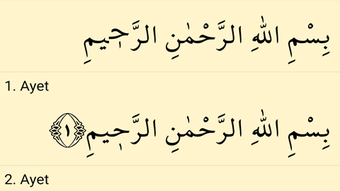 بِسْمِ اللهِ الرَّحْمٰنِ الرَّحٖيمِ
1. Ayet
بِسْمِ اللهِ الرَّحْمٰنِ الرَّحٖيمِ ﴿١﴾
2. Ayet